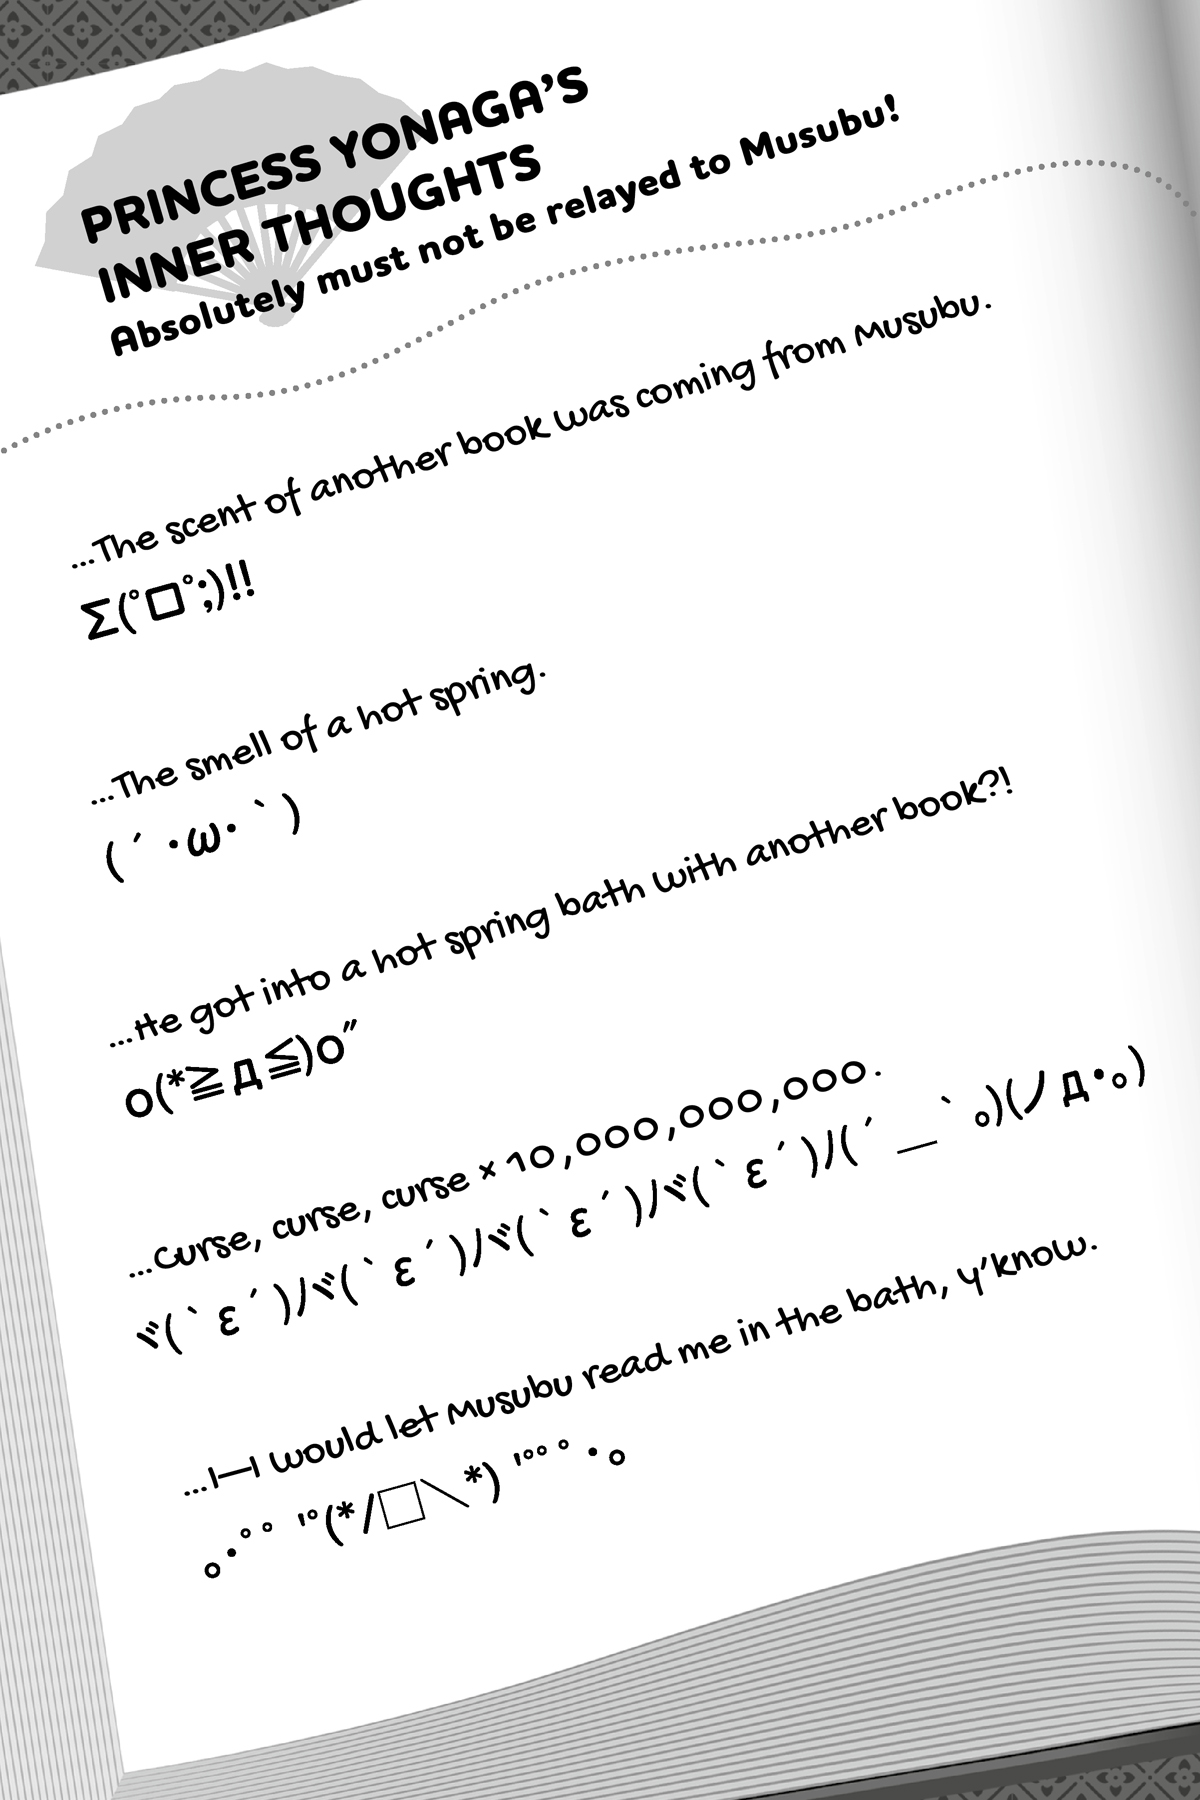 PRINCESS YONAGA'S
INNER THOUGHTS
Absolutely must not be relayed to Musubu!
...The scent of another book was coming from Musubu.
Σ(゚ロ゚;)!!
...The smell of a hot spring.
(´・ω・`)
...He got into a hot spring bath with another book?!
o(*≧д≦)o″
...Curse, curse, curse × 10,000,000,000.
ヾ(`ε´)ﾉヾ(`ε´)ﾉヾ(`ε´)ﾉヾ(`ε´)ﾉ(´＿`。)(ノд・。)
...I—I would let Musubu read me in the bath, y'know.
。・゚゚ '゚(*/□＼*) '゚゚゚・。